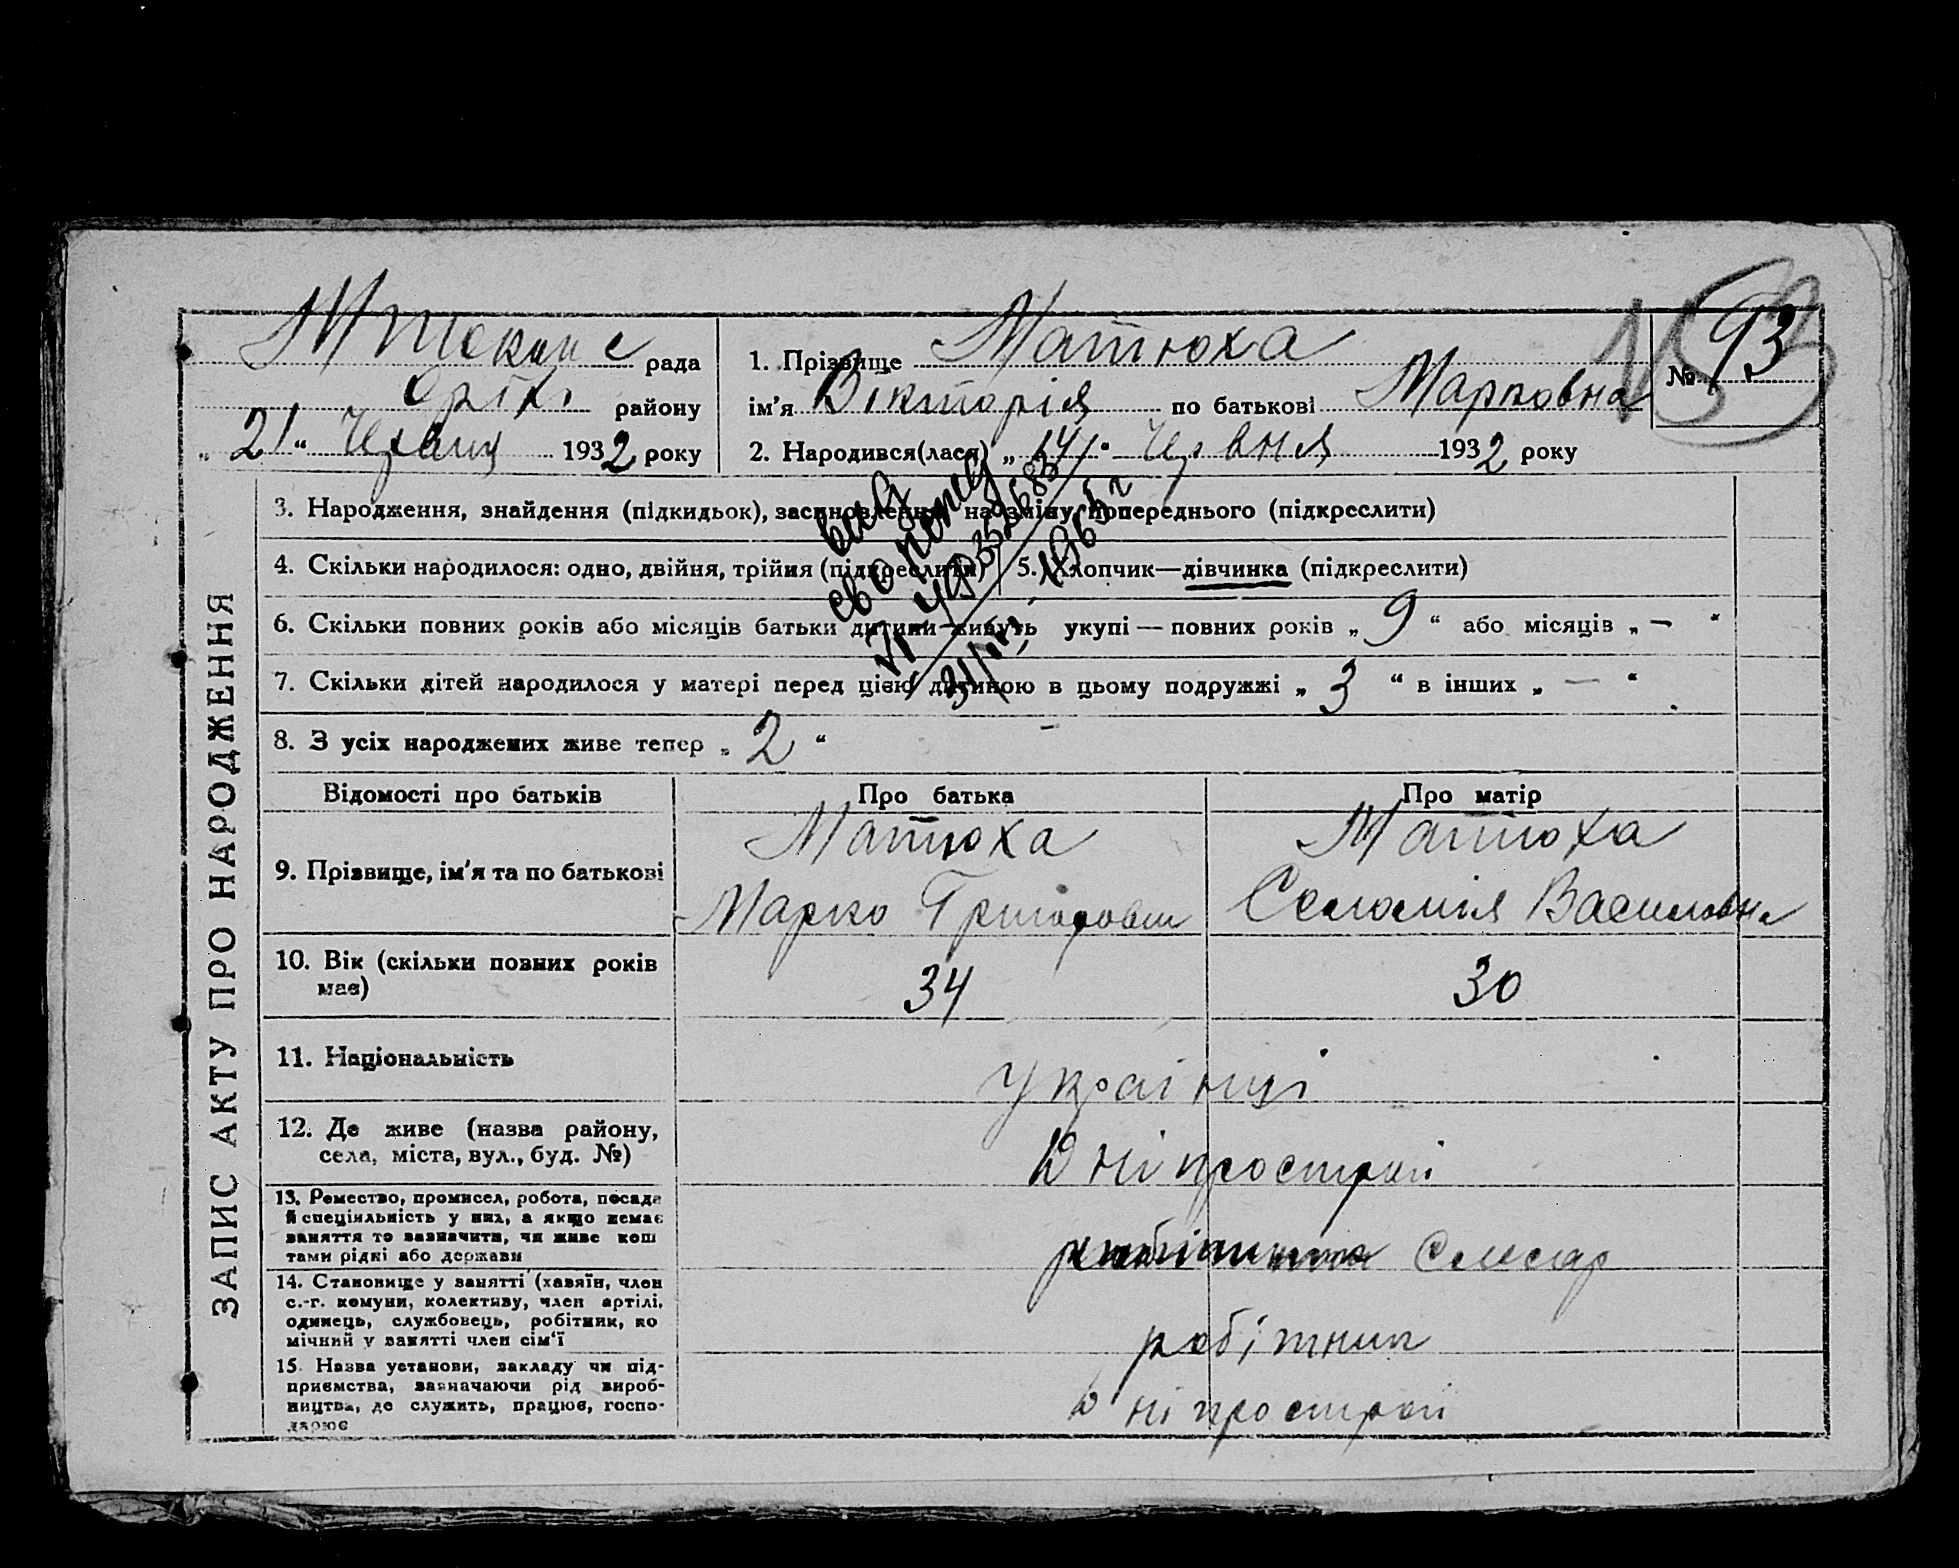 рада
1. Прізвище Матюха
№ 93
153
району
ім'я Вікторія по батькові Марковна
„ 21 “ Червня 1932 року
2. Народився(лася) „ 14 “ Червня 1932 року
3. Народження, знайдення (підкидьок), засиновлення на зміну попереднього (підкреслити)
4. Скільки народилося: одно, двійня, трійня (підкреслити)
5. Хлопчик—дівчинка (підкреслити)
6. Скільки повних років або місяців батьки дитини живуть укупі — повних років „ 9 “ або місяців „ – “
7. Скільки дітей народилося у матері перед цією дитиною в цьому подружжі „ 3 “ в інших „ — “
8. З усіх народжених живе тепер „ 2 “ –
31/III 1965 г
ЗАПИС АКТУ ПРО НАРОДЖЕННЯ
Відомості про батьків
Про батька
Про матір
9. Прізвище, ім'я та по батькові
Матюха
Марко Григорович
Матюха
Соломія Василовна
10. Вік (скільки повних років
має)
34
30
11. Національність
українці
12. Де живе (назва району,
села, міста, вул., буд. №)
Дніпрострой
13. Ремество, промисел, робота, посада
й спеціяльність у них, а якщо немає
заняття то зазначити, чи живе кош
тами рідні або держави
Слюсар
14. Становище у занятті (хазяїн, член
с.-г. комуни, колективу, член артілі,
одинець, службовець, робітник, по
мічний у занятті член сім'ї
робітник
15. Назва установи, закладу чи під-
приємства, зазначаючи рід вироб-
ництва, де служить, працює, госпо-
дарює
Дніпрострой